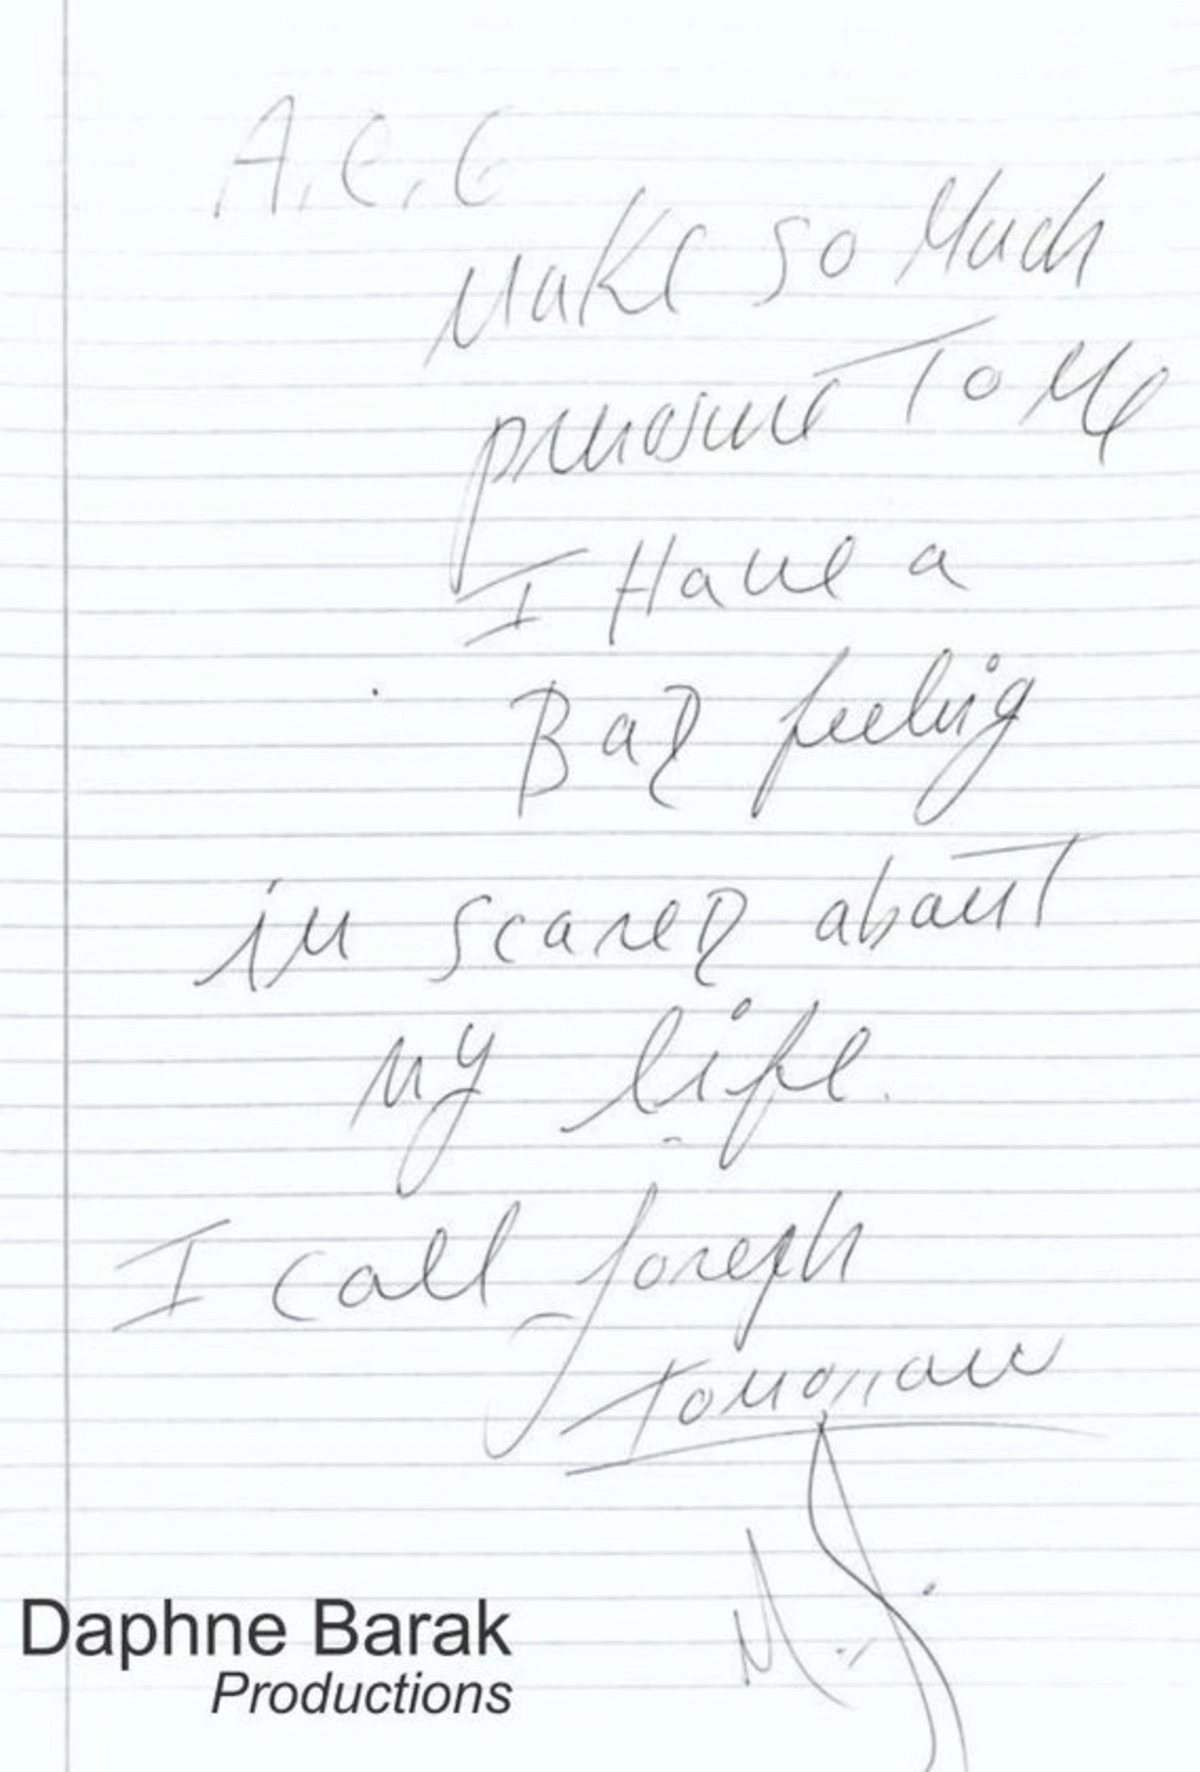 A.E.G
Make so Much
pressure To Me
I Have a
Bad feeling
im scared about
my life.
I call Joseph
tomorrow
M.J.
Daphne Barak
Productions